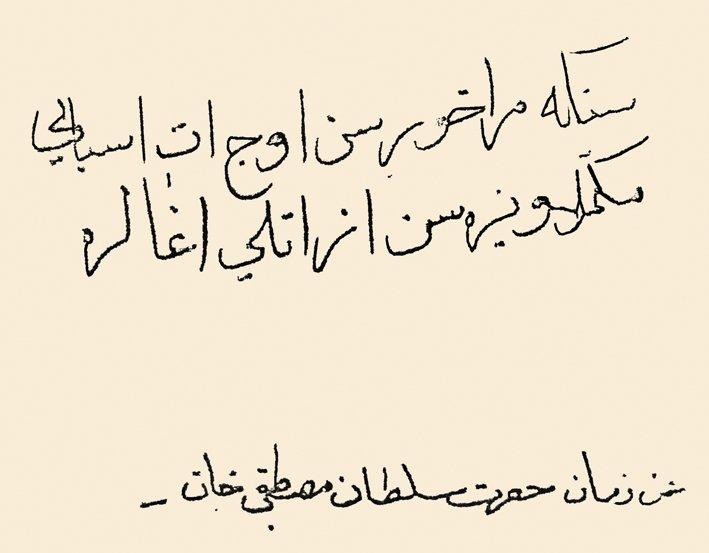 سنكه مراخور سن اوج ات اسبابي
مكملا ويره سن اتلي اغالره
من زمان حضرت سلطان مصطفى خان